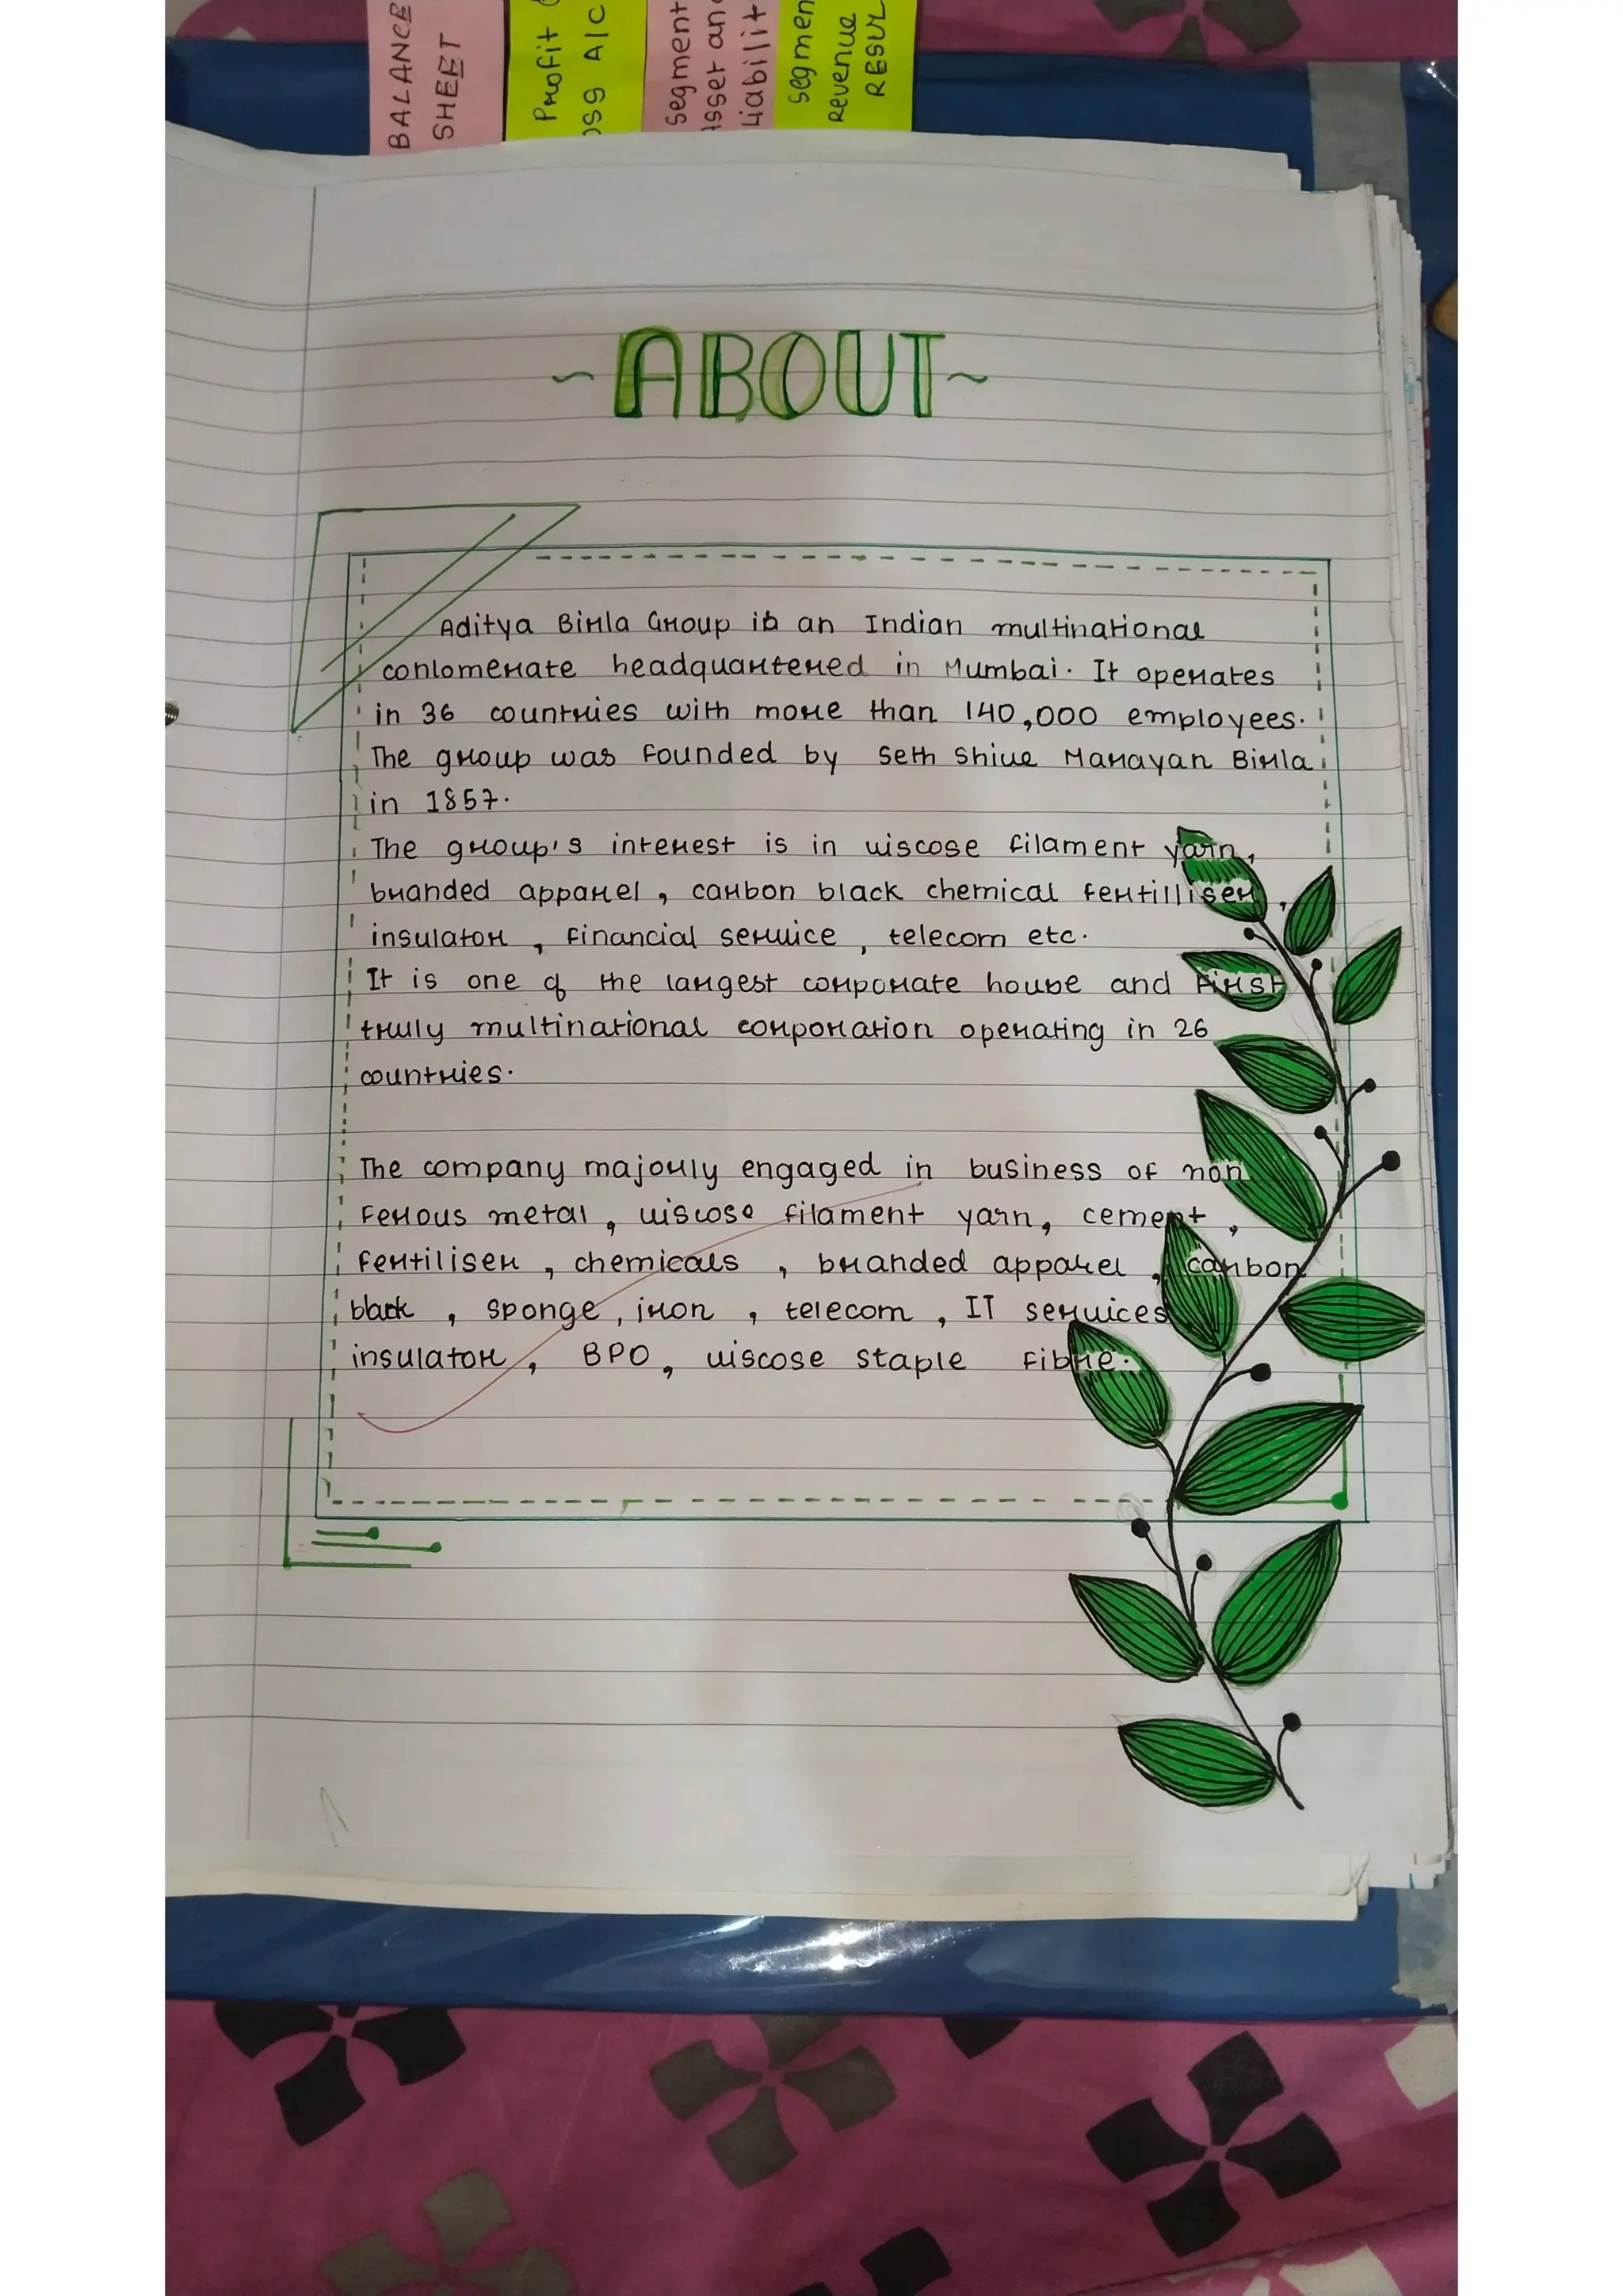 BALANCE
SHEET
Profit
OSS A/C
Segment
Asset and
Liabilit
Segmen
Revenue
RESUL
~ABOUT~
Aditya Birla Group is an Indian multinational
conlomerate headquartered in Mumbai. It operates
in 36 countries with more than 140,000 employees.
The group was founded by Seth Shive Marayan Birla
in 1857.
The group's interest is in viscose filament yarn,
branded apparel, carbon black chemical fertilliser,
insulator, financial service, telecom etc.
It is one of the largest corporate house and first
truly multinational corporation operating in 26
countries.
The company majorly engaged in business of non
ferrous metal, viscose filament yarn, cement,
fertiliser, chemicals, branded apparel, carbon
black, sponge, iron, telecom, IT services
insulator, BPO, viscose staple fibre.